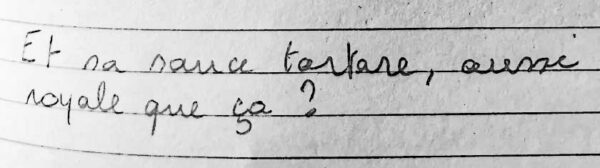 Et sa sauce tartare, aussi
royale que ça ?